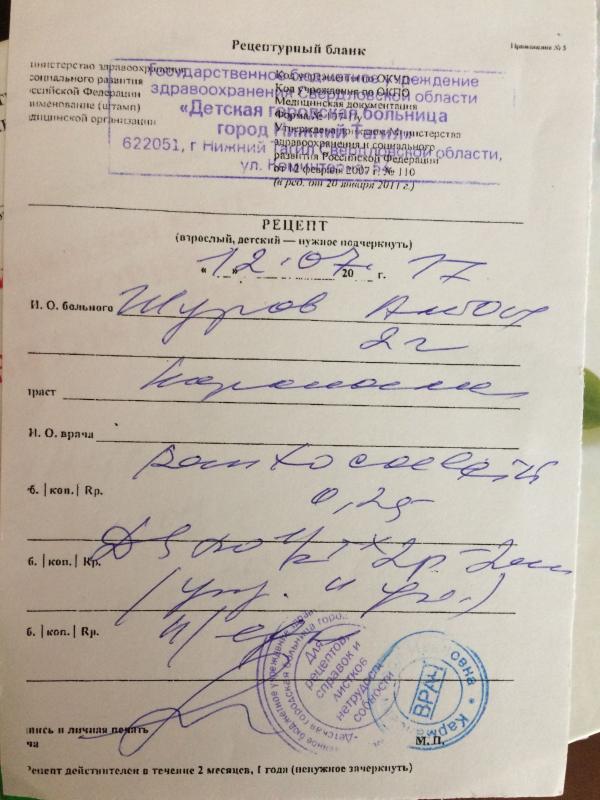 Рецептурный бланк
Приложение № 5
инистерство здравоохранения
социального развития
ссийской Федерации
именование (штамп)
дицинской организации
Код учреждения по ОКУД
Код учреждения по ОКПО
Медицинская документация
Форма № 107-1/у
Утверждена приказом Министерства
здравоохранения и социального
развития Российской Федерации
от 12 февраля 2007 г. № 110
(в ред. от 20 января 2011 г.)
Государственное бюджетное учреждение
здравоохранения Свердловской области
«Детская городская больница
город Нижний Тагил»
622051, г Нижний Тагил Свердловской области,
ул. Коминтерна,
РЕЦЕПТ
(взрослый, детский — нужное подчеркнуть)
« » 12.07. 20 г. 17
И. О. больного Шуров Антон
2 г
траст
И. О. врача
б. | коп. | Rp.
0,25
б. | коп. | Rp. 2р
б. | коп. | Rp.
Для
рецептов
справок и
листков
нетрудоспо
собности
ВРАЧ
вна * Карма
пись и личная печать
ча
М. П.
Рецепт действителен в течение 2 месяцев, 1 года (ненужное зачеркнуть)